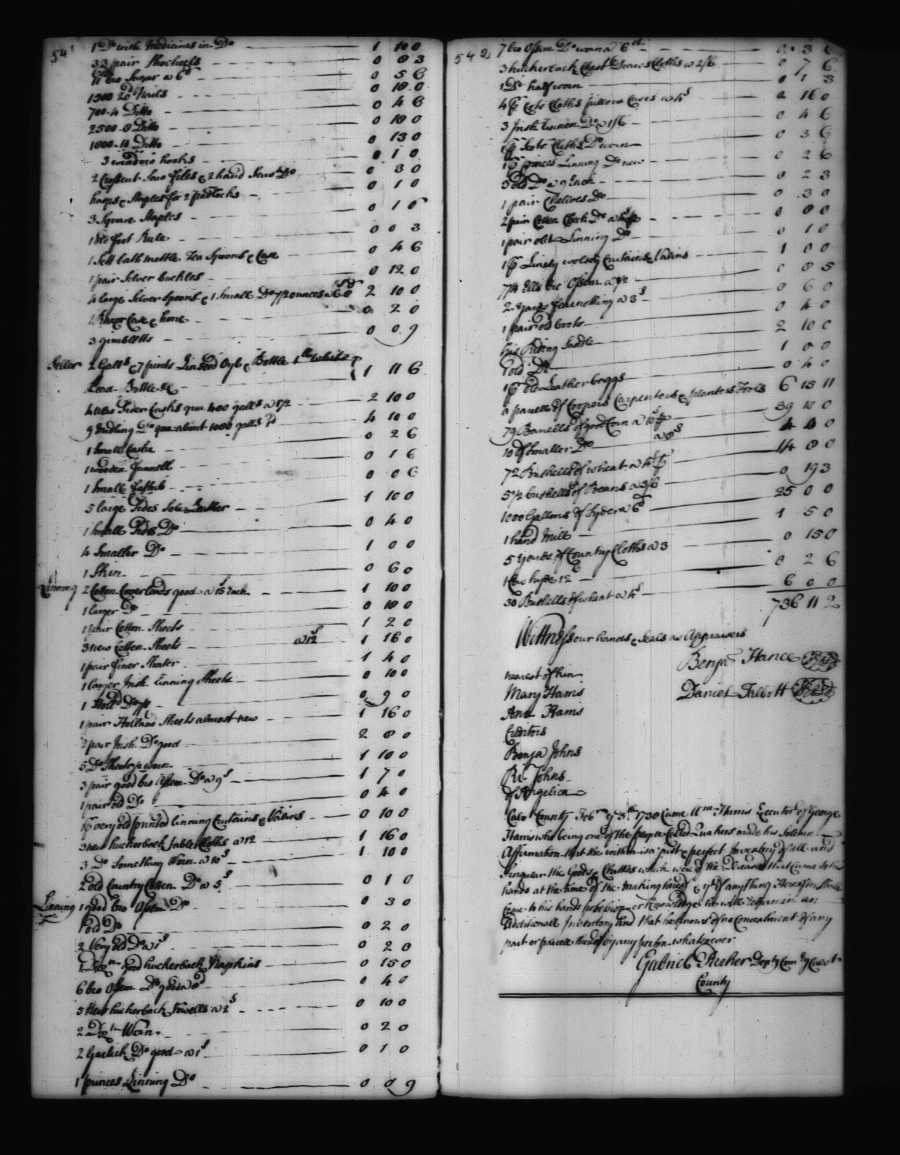 541
1 Do with Medicines in Do 1 10 0
33 pair Shoe heels 0 8 3
11 bro Sugar a 6d 0 5 6
1500 20d Nails 0 10 0
700 4 Ditto 0 4 6
2500 8 Ditto 0 10 0
1000 10 Ditto 0 13 0
3 window hooks 0 1 0
2 Crosscut Saw files & 2 hand Saw Do 0 3 0
hoops & Staples for 2 padlocks 0 1 0
3 Square Staples 0 1 6
1 foot Rule 0 0 3
1 Sett bath mettle Tea Spoons & Case 0 4 6
1 pair Silver buckles 0 12 0
4 large Silver Spoons & 1 Small Do 7½ ounces 2 10 0
1 Razor Case & hone 0 2 0
3 gimbletts 0 0 9
Seller 2 Galls & 7 pints Linseed Oyl & Bottle
1 11 6
4 new Sider Casks qua 400 galls a 1/2 2 10 0
9 Midling Do qua about 1000 galls Do 4 10 0
1 Small Caske 0 2 6
1 wooden Funnell 0 1 6
1 Small 0 0 6
5 large Sides Sole Leather 1 10 0
1 Small Side Do 0 4 0
4 Smaller Do 1 0 0
1 Skin 0 6 0
Linning 2 Cotton Coverleads good a 15 each 1 10 0
1 larger Do 0 10 0
1 pair Cotton Sheets 1 2 0
3 new Cotten Sheets a 12s 1 16 0
1 pair finer 1 4 0
1 larger Irish Linning Sheets 0 10 0
1 Holld Do 0 9 0
1 pair Holland Sheets almost new 1 16 0
2 pair Irish Do good 2 8 0
5 Do worn 1 10 0
3 pair good bro Osten Do a 9s 1 7 0
1 pair old Do 0 4 0
very old printed Linning Curtains & Valines 0 10 0
3 new huckerback table Cloths a 12 1 16 0
3 Do Something Worn a 10s 1 10 0
2 old Country Cotten Do a 5s 0 1 0
Linning 1 good bro Osten Do 0 3 0
1 old Do 0 2 0
2 Very old Do a 1s 0 2 0
good huckerback Napkins 0 15 0
6 bro Osten Do good a 8d 0 4 0
5 New huckerback Towells a 2s 0 10 0
2 Do Worn 0 2 0
2 Garlick Do good a 1s 0 1 0
1 princes Linning Do 0 0 9
542
7 bro Osten Do worn a 6d 0 3 6
3 huckerback Chest Draws Cloths a 2/6 0 7 6
1 Do half worn 0 1 3
4 Cloths pillow Cases a 4s 0 16 0
3 Irish Linnen Do a 1/6 0 4 6
Cloths Do worn 0 3 6
princes Linning Do new 0 2 6
3 old Do a 9 Each 0 2 3
1 pair Do 0 3 0
2 pair Cotten Do 0 8 0
1 pair old Linning Do 0 1 0
Linsey woolsey Curtains & Valines 1 0 0
0 8 5
2 yards a 3s 0 6 0
1 pair old boots 0 4 0
his Riding Saddle 2 10 0
1 old Do 1 0 0
old Leather baggs 0 4 0
a parcell of Coopers Carpenters & planters Tools 6 13 11
79 Barrells of good Corn a 10s 39 10 0
10 of Smaller Do a 8s 4 0 0
72 Bushells of wheat a 4s 14 8 0
5 1/2 bushells of Beans a 3/6 0 19 3
1000 Gallons of Syder a 6d 25 0 0
1 hand Mill 1 5 0
5 yards of Country Cloth a 3 0 15 0
1 Cow hyde 12 0 2 6
30 Bushells of wheat a 4s 6 0 0
736 11 2
Wittness our hands & Seals as Appraisers
Benja Hance
Daniel Tallbott
nearest of kin
Mary Harris
Ann Harris
Creditors
Benja Johns
Ri Johns
of Angelica
Calvt County Feb ye 3d 1730 Came Wm Harris Executor of George
Harris who being one of the people Called Quakers made his Solemn
Affirmation that the within is a just & perfect Inventory of all and
Singular the Goods & Chattles which were of the Deceased that Came to his
hands at the time of the making thereof & yt if anything Hereafter Shall
Come to his hands possession or Knowledge he will return in an
Additionall Inventory and that he knows of no Concealment of any
part or parcell thereof by any person whatsoever
Gabriel Parker Depty Com of Calvert
County